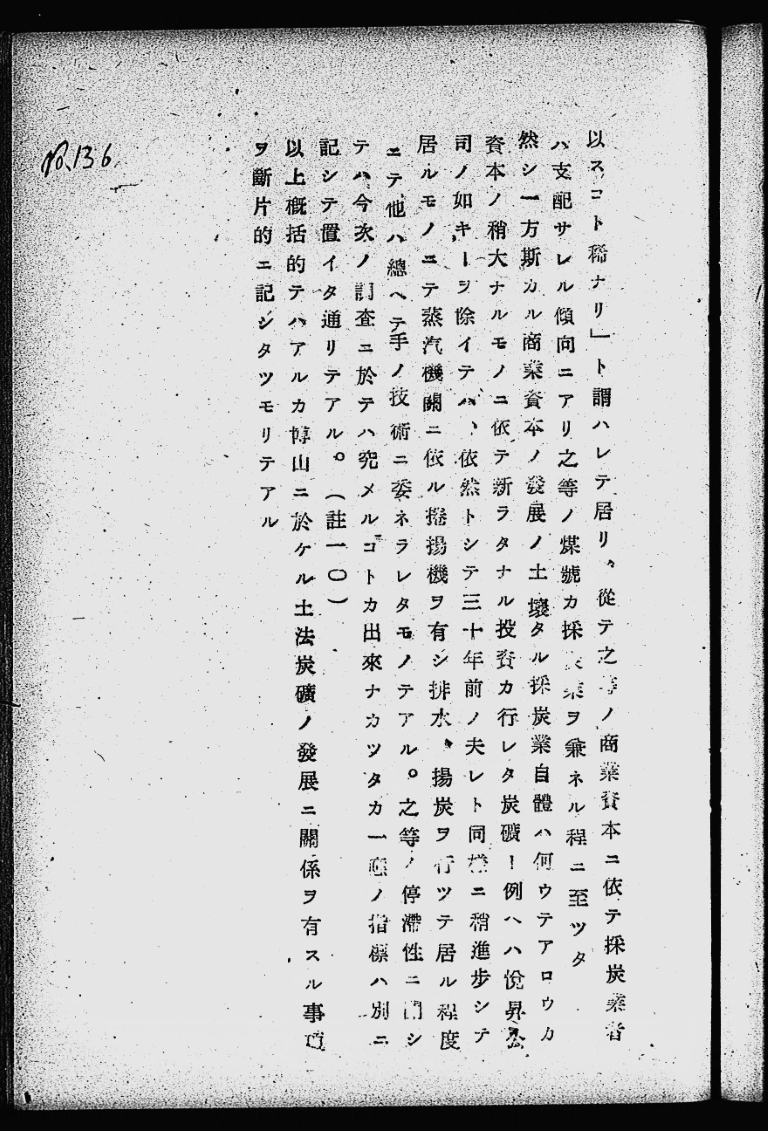 以スコト稀ナリ」ト謂ハレテ居リ、從テ之等ノ商業資本ニ依テ採炭業者
ハ支配サレル傾向ニアリ之等ノ煤號カ採炭業ヲ兼ネル程ニ至ツタ
然シ一方斯カル商業資本ノ發展ノ土壤タル採炭業自體ハ何ウテアロウカ
資本ノ稍大ナルモノニ依テ新ラタナル投資カ行レタ炭礦ー例ヘハ悅昇公
司ノ如キーヲ除イテハ、依然トシテ三十年前ノ夫レト同樣ニ稍進步シテ
居ルモノニテ蒸汽機關ニ依ル捲揚機ヲ有シ排水、揚炭ヲ行ツテ居ル程度
ニテ他ハ總ヘテ手ノ技術ニ委ネラレタモノテアル。之等ノ停滯性ニ關シ
テハ今次ノ調査ニ於テハ究メルコトカ出來ナカツタカ一應ノ指標ハ別ニ
記シテ置イタ通リテアル。（註一〇）
以上槪括的テハアルカ博山ニ於ケル土法炭礦ノ發展ニ關係ヲ有スル事項
ヲ斷片的ニ記シタツモリテアル
No.136